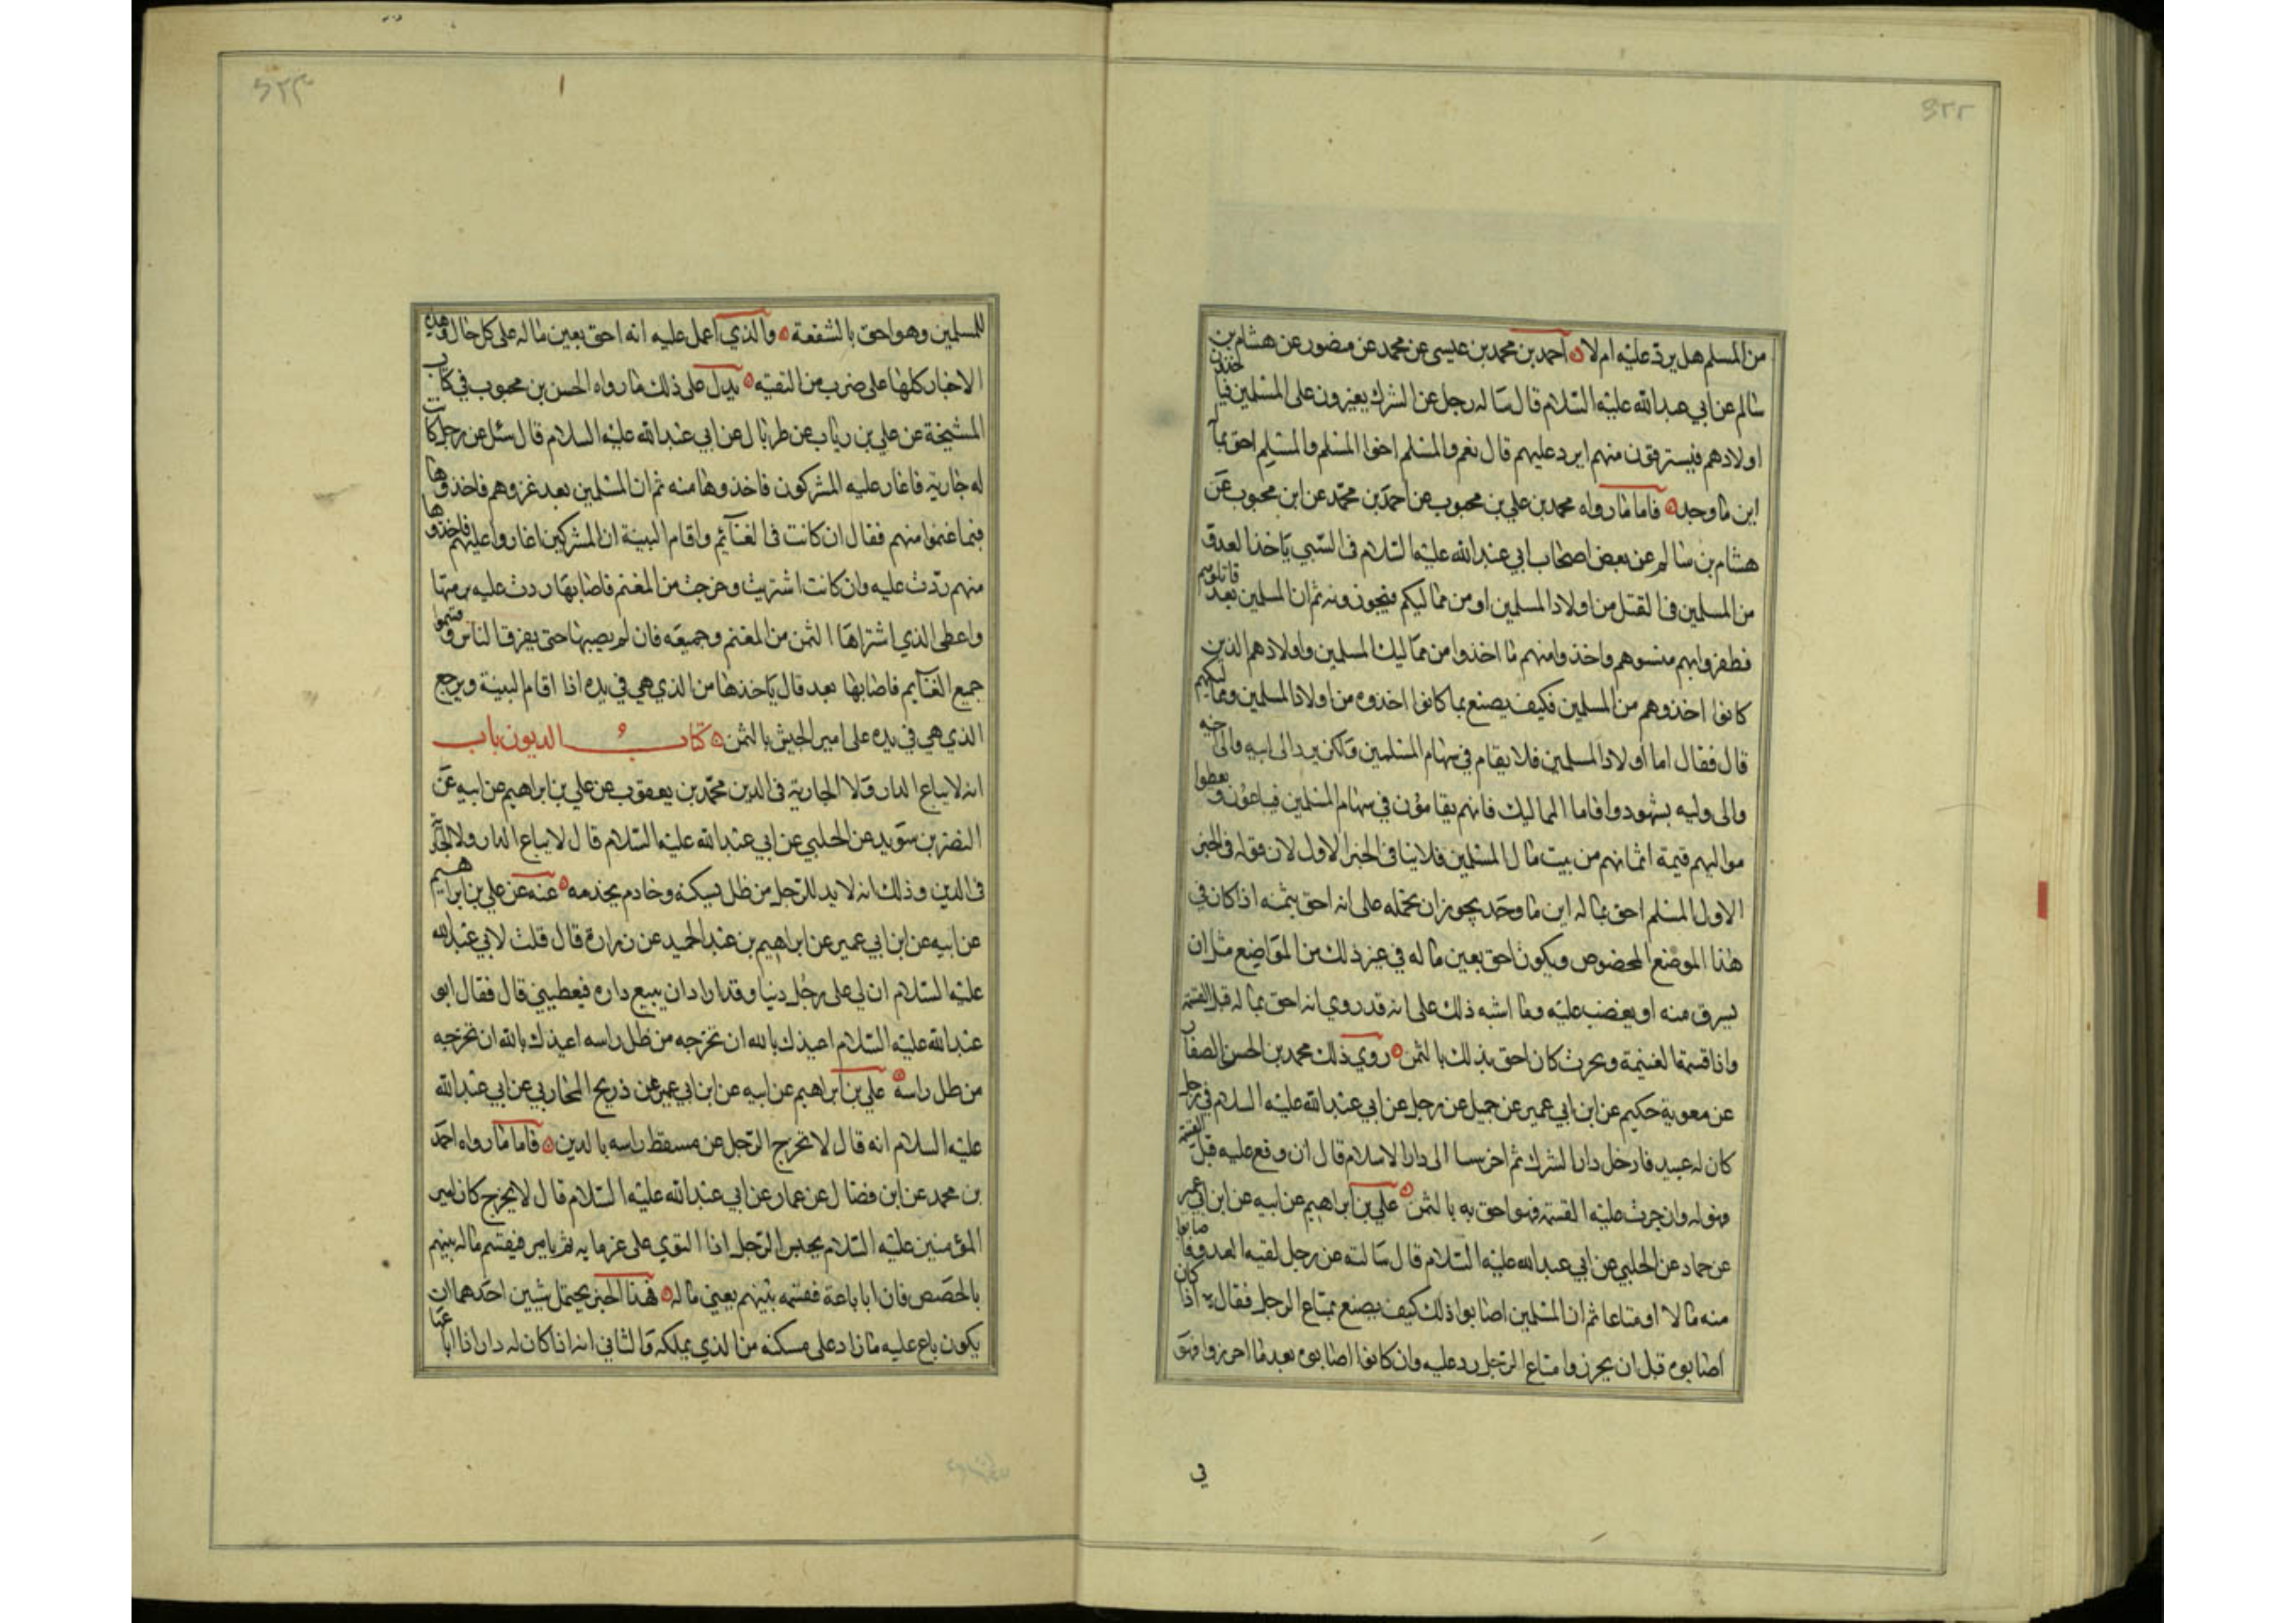 ٤٢٢
من المسلم هل يرد عليه ام لا ۞ احمد بن محمد بن عيسى عن محمد عن منصور عن هشام بن
سالم عن ابي عبد الله عليه السلام قال ساله رجل عن الشرك يغيرون على المسلمين فياخذون
اولادهم فيسترقون منهم ايرد عليهم قال نعم والمسلم اخوا المسلم والمسلم احق بما
اين ما وجد ۞ فاما ما رواه محمد بن علي بن محبوب عن احمد بن محمد عن ابن محبوب عن
هشام بن سالم عن بعض اصحاب ابي عبد الله عليه السلام في السبي ياخذ العدو
من المسلمين في القتل من اولاد المسلمين او من مماليكم فيحوزونه ثم ان المسلمين بعد قاتلوهم
فظفروا بهم فسبوهم واخذوا منهم ما اخذوا من مماليك المسلمين واولادهم الذين
كانوا اخذوهم من المسلمين فكيف يصنع بما كانوا اخذوه من اولاد المسلمين ومماليكهم
قال فقال اما اولاد المسلمين فلا يقام في سهام المسلمين ولكن يرد الى ابيه والى اخيه
والى وليه بشهود واما المماليك فانهم يقامون في سهام المسلمين فيباعون ويعطوا
مواليهم قيمة اثمانهم من بيت مال المسلمين فلا ينافي الخبر الاول لان قوله في الخبر
الاول المسلم احق بماله اين ما وجد يجوز ان نحمله على انه احق بثمنه اذا كان في
هذا الموضع المخصوص ويكون احق بعين ماله في غير ذلك من المواضع مثل ان
يسرق منه او يغضب عليه وما اشبه ذلك على انه قد روي انه احق بماله قبل القسمة
واذا قسمة الغنيمة وبحرث كان احق بذلك بالثمن ۞ روي ذلك محمد بن الحسن الصفار
عن معوية حكيم عن ابن ابي عمير عن جميل عن رجل عن ابي عبد الله عليه السلام في رجل
كان له عبيد فادخل دار الشرك ثم اخر سبيا الى دار الاسلام قال ان وقع عليه قبل القسمة
فهو له وان جرت عليه القسمة فهو احق به بالثمن ۞ علي بن ابراهيم عن ابيه عن ابن ابي عمير
عن حماد عن الحلبي عن ابي عبد الله عليه السلام قال سالته عن رجل لقيه العدو فاصابوا
منه مالا او متاعا ثم ان المسلمين اصابوا ذلك كيف يصنع بمتاع الرجل فقال اذا كان
اصابوه قبل ان يحرزوا متاع الرجل رد عليه وان كانوا اصابوه بعد ما احرزوا فهو
في
٤٢٣
للمسلمين وهو احق بالشفعة ۞ والذي اعمل عليه انه احق بعين ماله على كل حال وهذه
الاخبار كلها على ضرب من التقية ۞ يدل على ذلك ما رواه الحسن بن محبوب في كتاب
المشيخة عن علي بن رياب عن طربال عن ابي عبد الله عليه السلام قال سئل عن رجل كانت
له جارية فاغار عليه المشركون فاخذوها منه ثم ان المسلمين بعد غزوهم فاخذوها
فيما غنموا منهم فقال ان كانت في الغنائم واقام البينة ان المشركين اغاروا عليهم فاخذوها
منهم ردت عليه وان كانت اشتريت وخرجت من المغنم فاصابها ردت عليه برمتها
واعطى الذي اشتراها الثمن من المغنم وجميعه فان لم يصبها حتى يفرق الناس وقسموا
جميع الغنايم فاصابها بعد قال ياخذها من الذي هي في يده اذا اقام البينة ويرجع
الذي هي في يده على امير الجيش بالثمن ۞ كتاب الديون باب
انه لا يباع الدار ولا الجارية في الدين محمد بن يعقوب عن علي بن ابراهيم عن ابيه عن
النضر بن سويد عن الحلبي عن ابي عبد الله عليه السلام قال لا يباع الدار ولا الجارية
في الدين وذلك انه لا بد للرجل من ظل يسكنه وخادم يخدمه ۞ عنه عن علي بن ابراهيم
عن ابيه عن ابن ابي عمير عن ابراهيم بن عبد الحميد عن زرارة قال قلت لابي عبد الله
عليه السلام ان لي على رجل دينا وقد اراد ان يبيع داره فيعطيني قال فقال ابو
عبد الله عليه السلام اعيذك بالله ان تخرجه من ظل راسه اعيذك بالله ان تخرجه
من ظل راسه ۞ علي بن ابراهيم عن ابيه عن ابن ابي عمير عن ذريح المحاربي عن ابي عبد الله
عليه السلام انه قال لا تخرج الرجل عن مسقط راسه بالدين ۞ فاما ما رواه احمد
بن محمد عن ابن فضال عن عمار عن ابي عبد الله عليه السلام قال لا يخرج كان امير
المؤمنين عليه السلام يحبس الرجل اذا التوي على غرمايه ثم يامر فيقسم ماله بينهم
بالحصص فان ابا باعه فقسمه بينهم يعني ماله ۞ فهذا الخبر يحتمل شيين احدهما ان
يكون باع عليه ما زاد على مسكنه من الذي يملكه والثاني انه اذا كان له دار اذا اباعها